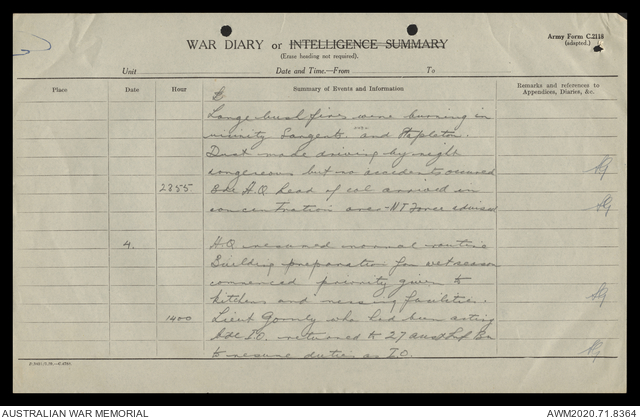 Army Form C.2118
(adapted.)
WAR DIARY or INTELLIGENCE SUMMARY
(Erase heading not required).
Unit Date and Time.—From To
Place Date Hour Summary of Events and Information Remarks and references to Appendices, Diaries, &c.
Large bush fires were burning in
vicinity Sargents and Stapleton.
Dust made driving by night
dangerous but no accidents occurred
2355 Bde H.Q head of col arrived in
concentration area - NT Force advised
4. H.Q resumed normal routine
Building preparation for wet season
commenced priority given to
kitchens and messing facilities.
1400 Lieut Gormly who had been acting
bde I.O. returned to 27 Aust Inf Bn
to resume duties as I.O.
AUSTRALIAN WAR MEMORIAL
AWM2020.71.8364